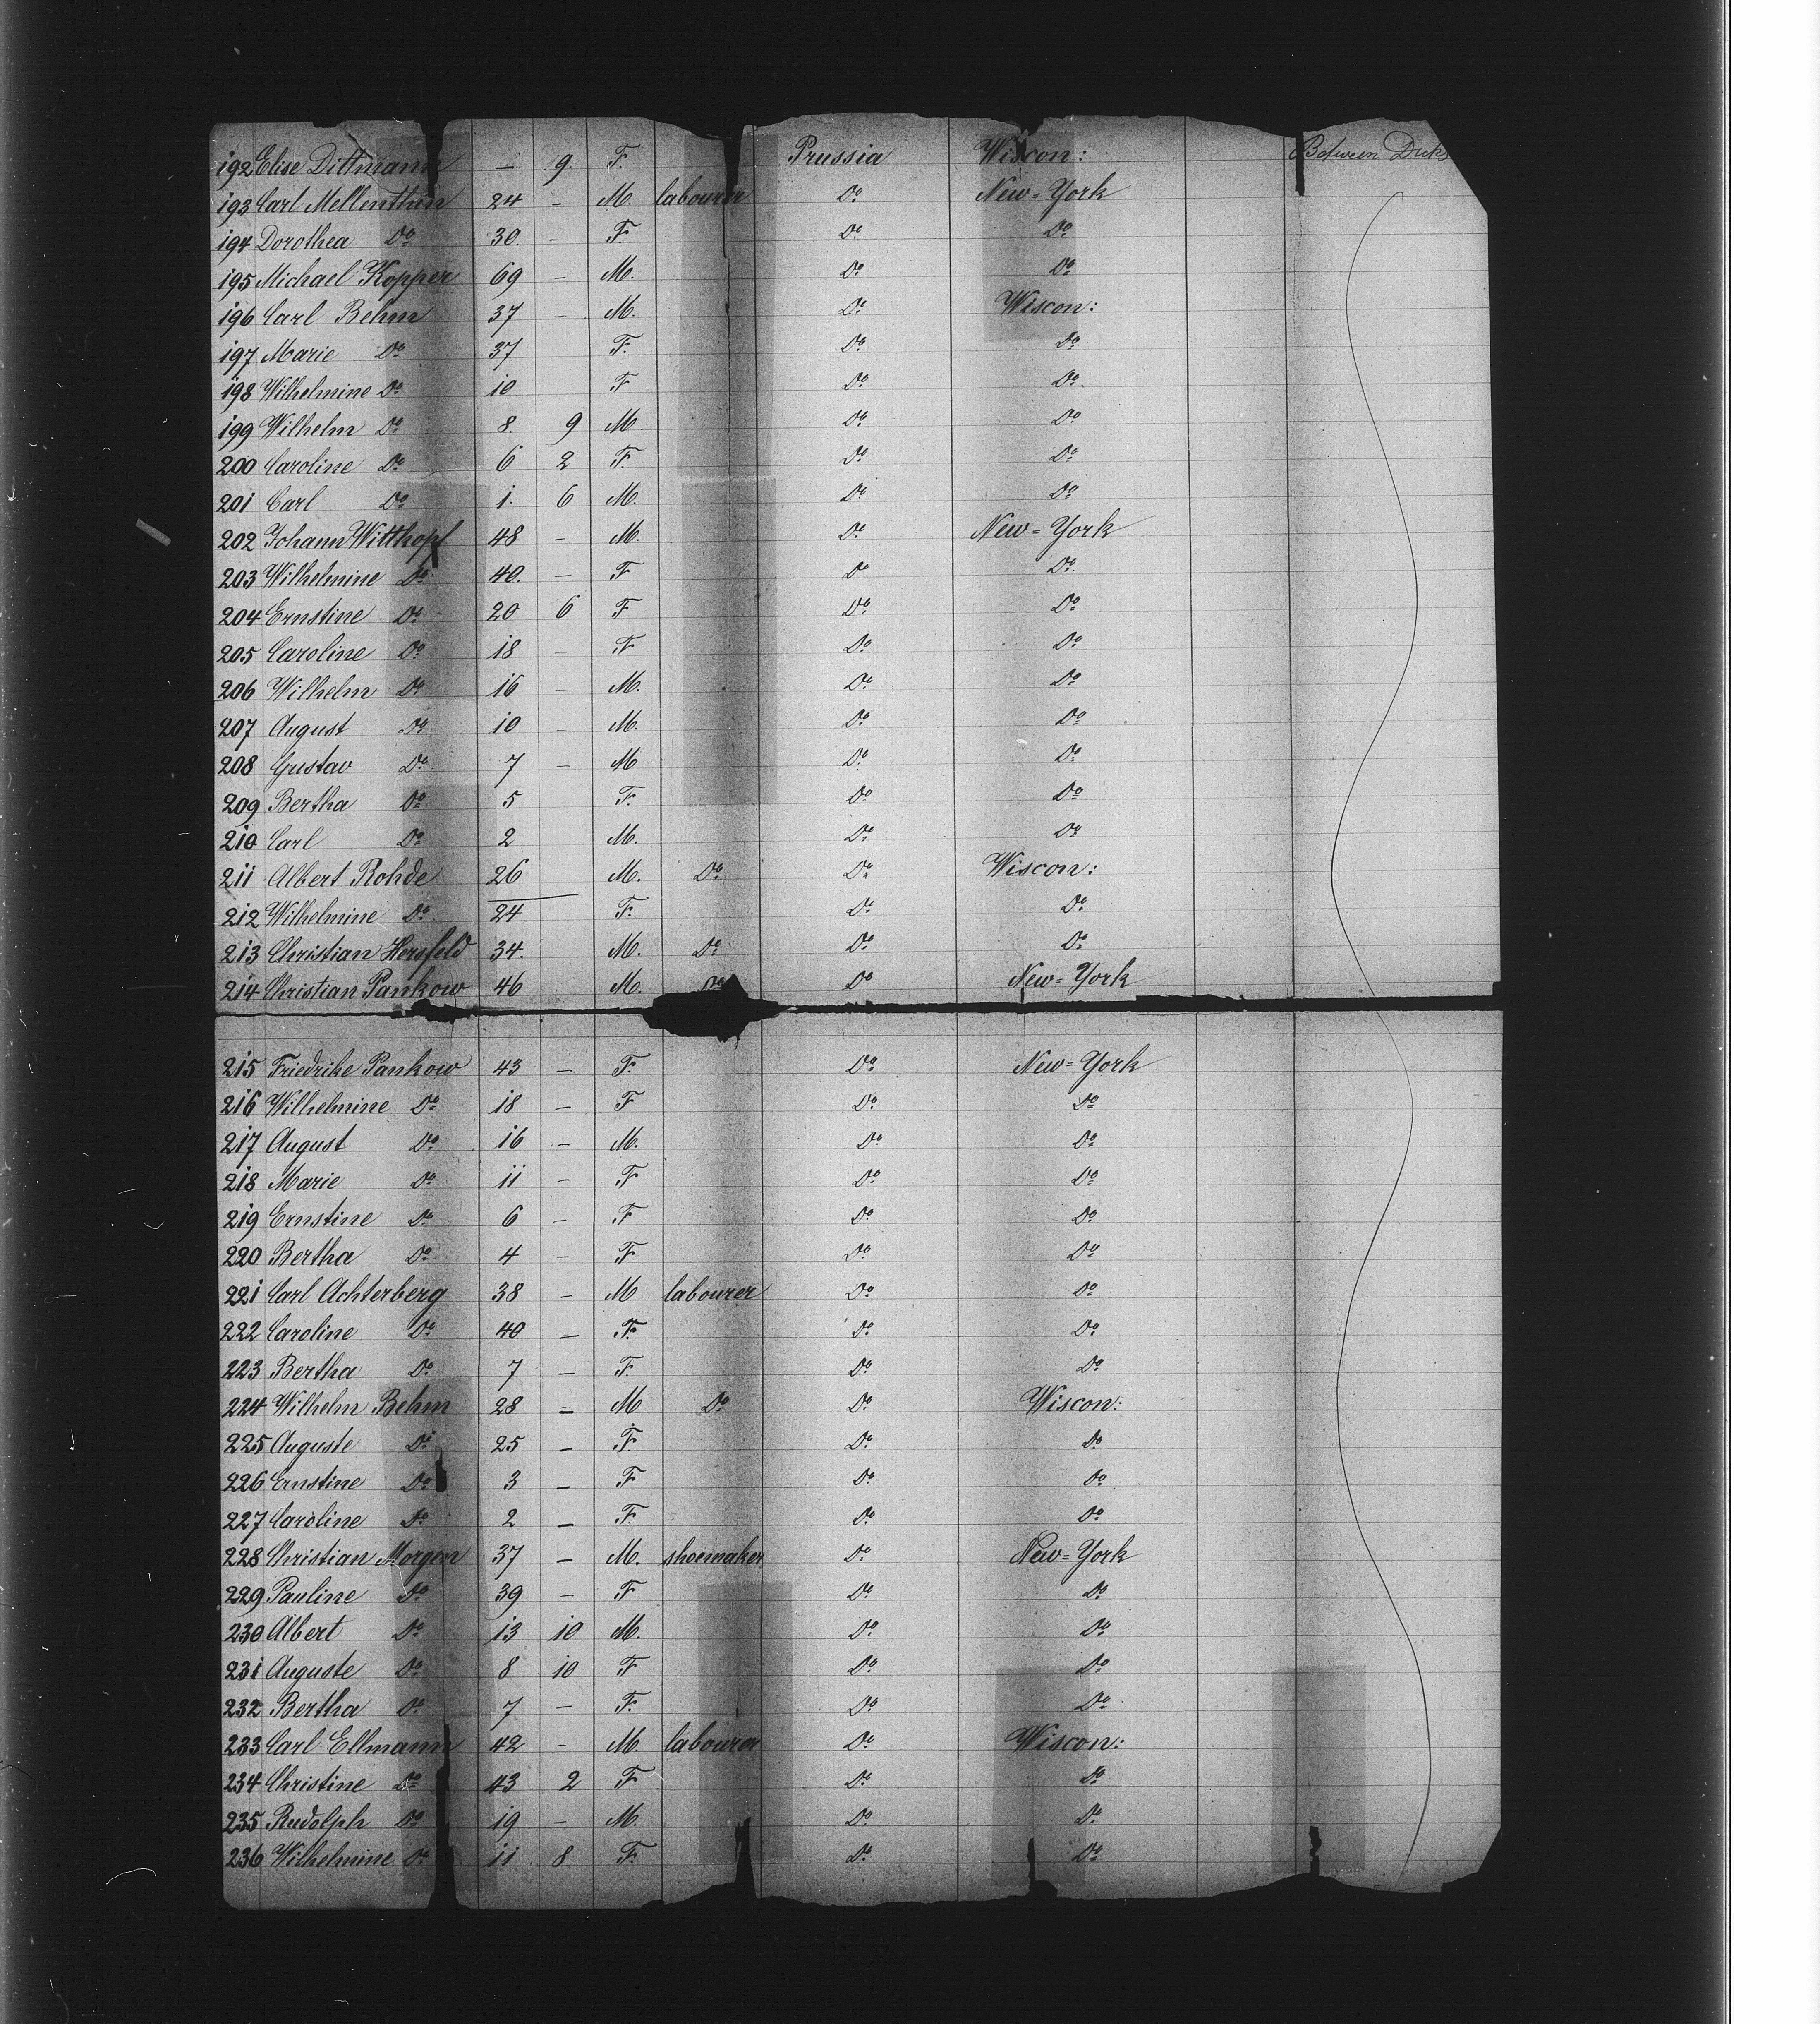 192 Elise Dittmann — 9. F. Prussia Wiscon: Between Decks
193 Carl Mellenthin 24 – M. labourer Do New-York
194 Dorothea Do 30. – F. Do Do
195 Michael Kopper 69 – M. Do Do
196 Carl Behm 37 – M. Do Wiscon:
197 Marie Do 37 F. Do Do
198 Wilhelmine Do 10 F Do Do
199 Wilhelm Do 8. 9 M. Do Do
200 Caroline Do 6 2 F. Do Do
201 Carl Do 1. 6 M. Do Do
202 Johann Witthopf 48 – M. Do New-York
203 Wilhelmine Do 40. – F Do Do
204 Ernstine Do 20 6 F Do Do
205 Caroline Do 18 – F Do Do
206 Wilhelm Do 16 – M. Do Do
207 August Do 10 – M. Do Do
208 Gustav Do 7 – M Do Do
209 Bertha Do 5 F. Do Do
210 Carl Do 2 M. Do Do
211 Albert Rohde 26 M. Do Do Wiscon:
212 Wilhelmine Do 24 F. Do Do
213 Christian Hersfeld 34. M. Do Do Do
214 Christian Pankow 46 M. Do Do New-York
215 Friedrike Pankow 43 – F. Do New-York
216 Wilhelmine Do 18 – F Do Do
217 August Do 16 – M. Do Do
218 Marie Do 11 – F Do Do
219 Ernstine Do 6 – F Do Do
220 Bertha Do 4 – F Do Do
221 Carl Achterberg 38 – M labourer Do Do
222 Caroline Do 40 – F. Do Do
223 Bertha Do 7 – F. Do Do
224 Wilhelm Behm 28 – M Do Do Wiscon:
225 Auguste Do 25 – F. Do Do
226 Ernstine Do 3 – F Do Do
227 Caroline Do 2 – F Do Do
228 Christian Morgen 37 – M. shoemaker Do New-York
229 Pauline Do 39 – F Do Do
230 Albert Do 13 10 M. Do Do
231 Auguste Do 8 10 F Do Do
232 Bertha Do 7 – F. Do Do
233 Carl Ellmann 42 – M. labourer Do Wiscon:
234 Christine Do 43 2 F Do Do
235 Rudolph Do 19 – M. Do Do
236 Wilhelmine Do 11 8 F. Do Do